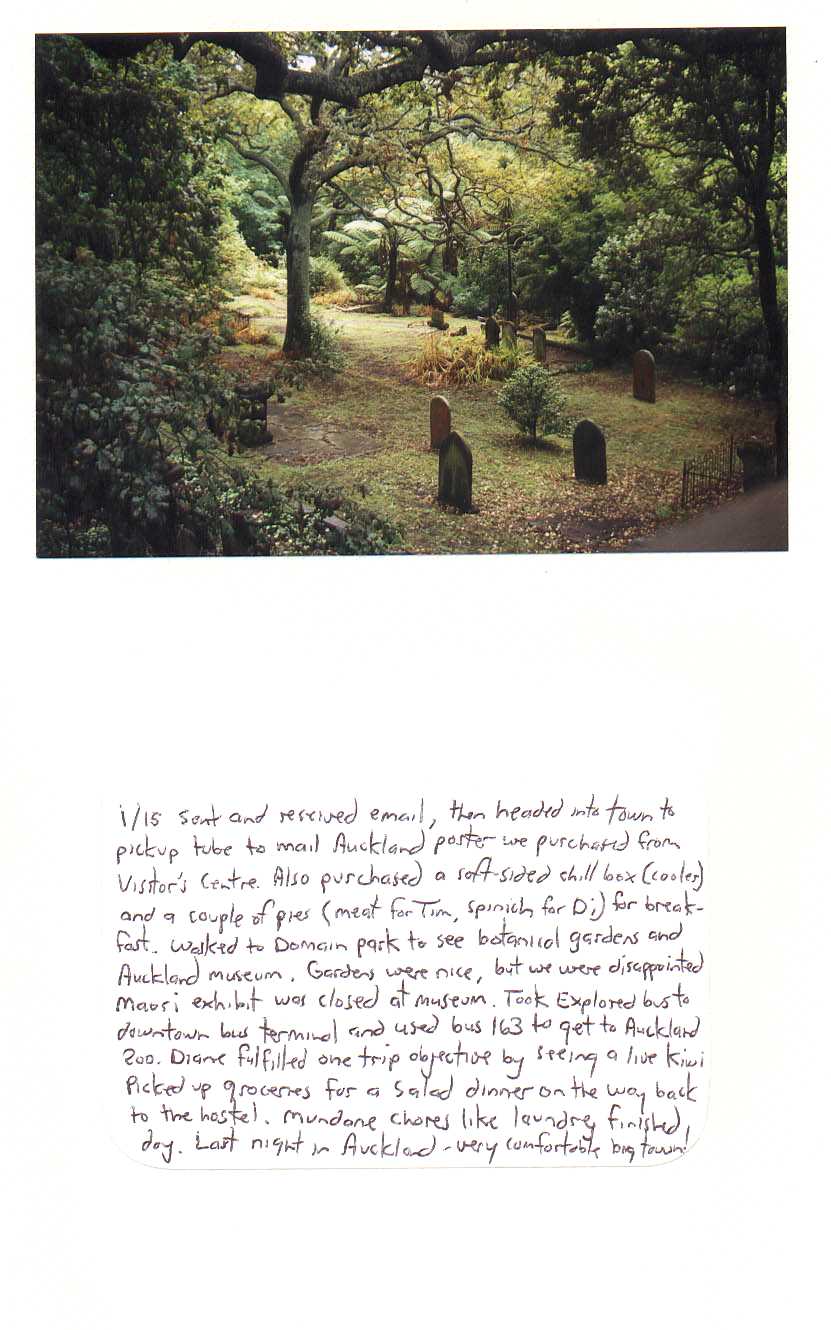 1/15 Sent and received email, then headed into town to
pickup tube to mail Auckland poster we purchased from
Visitor's Centre. Also purchased a soft-sided chill box (cooler)
and a couple of pies (meat for Tim, spinich for Di) for break-
fast. Walked to Domain park to see botanical gardens and
Auckland museum. Gardens were nice, but we were disappointed
Maori exhibit was closed at museum. Took Explored bus to
downtown bus terminal and used bus 163 to get to Auckland
Zoo. Diane fulfilled one trip objective by seeing a live Kiwi
Picked up groceries for a Salad dinner on the way back
to the hostel. Mundane chores like laundry finished,
day. Last night in Auckland - very comfortable big town!